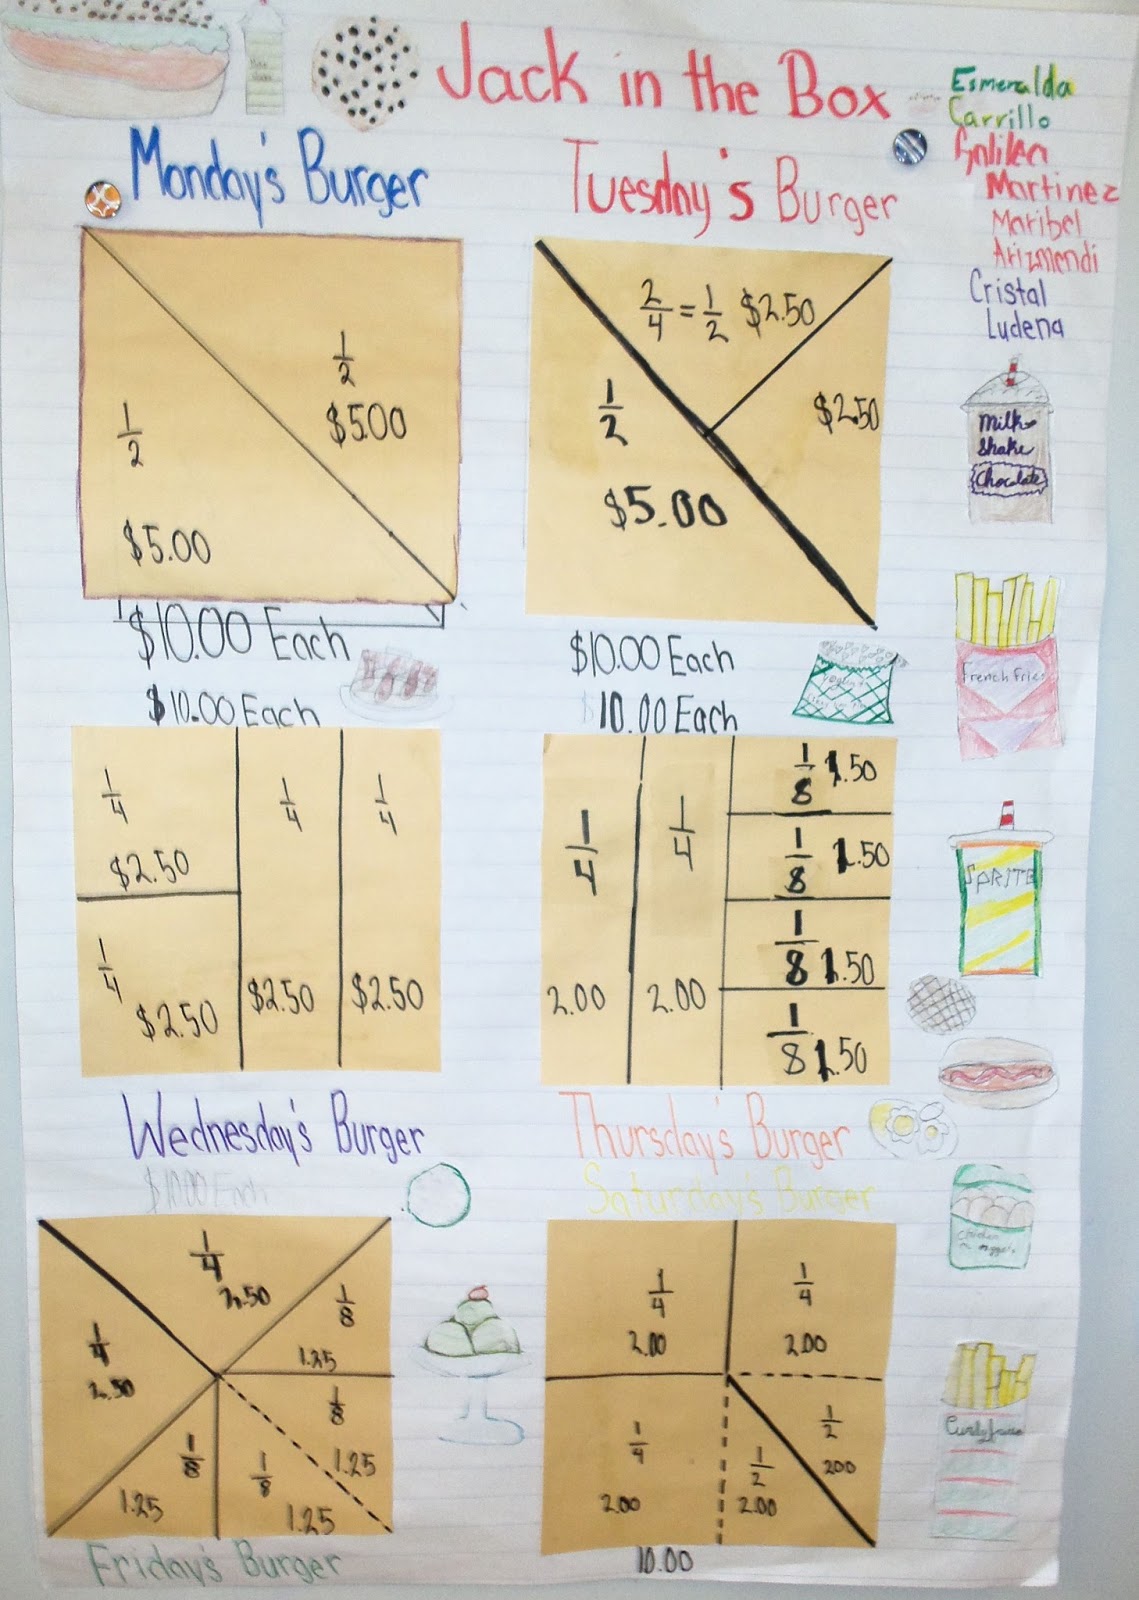 Jack in the Box
Esmeralda
Carrillo
Galilea
Martinez
Maribel
Arizmendi
Cristal
Ludena
Monday's Burger
1/2
$5.00
1/2
$5.00
$10.00 Each
Tuesday's Burger
2/4 = 1/2 $2.50
$2.50
1/2
$5.00
$10.00 Each
Milk
Shake
Chocolate
French Fries
SPRITE
$10.00 Each
1/4
$2.50
1/4
$2.50
1/4
$2.50
1/4
$2.50
Wednesday's Burger
10.00 Each
1/4
2.00
1/4
2.00
1/8 1.50
1/8 1.50
1/8 1.50
1/8 1.50
Thursday's Burger
$10.00 Each
1/4
2.50
1/4
2.50
1/8
1.25
1/8
1.25
1/8
1.25
1/8
1.25
Friday's Burger
Saturday's Burger
1/4
2.00
1/4
2.00
1/4
2.00
1/2
2.00
1/2
200
10.00
chicken
nuggets